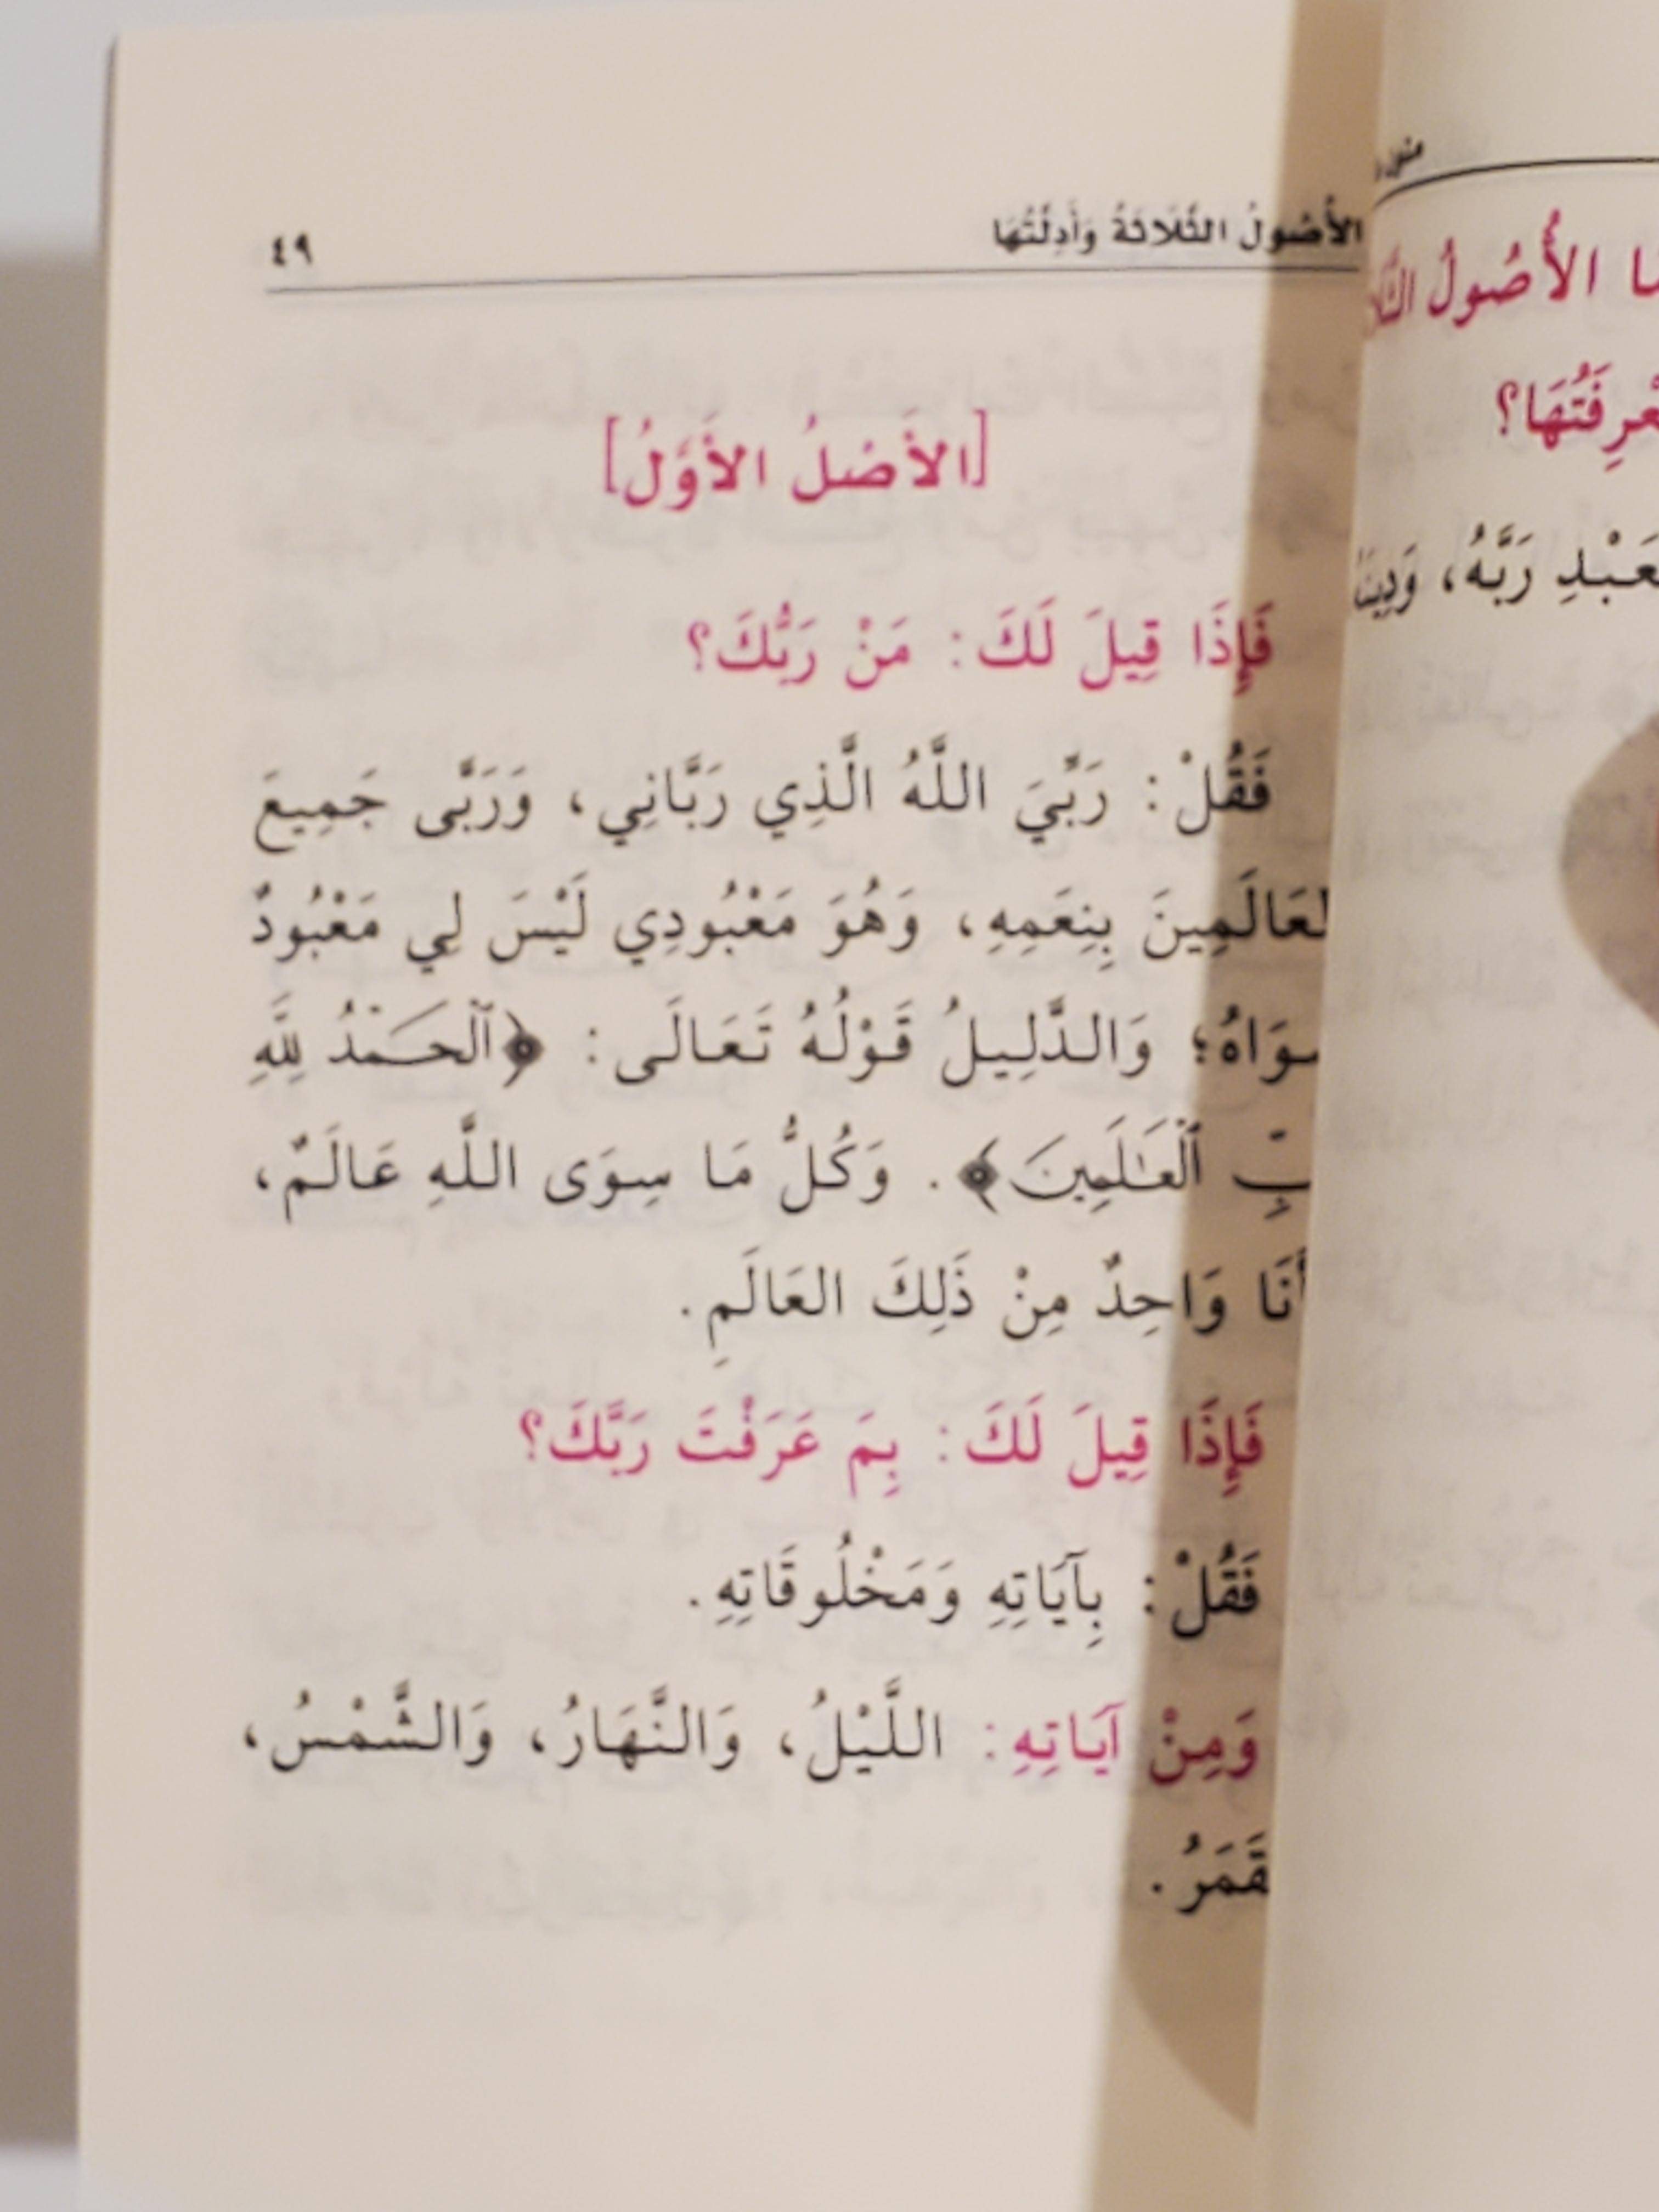 الأُصُولُ الثَّلَاثَةُ وَأَدِلَّتُهَا ٤٩
[الأَصْلُ الأَوَّلُ]
فَإِذَا قِيلَ لَكَ: مَنْ رَبُّكَ؟
فَقُلْ: رَبِّيَ اللَّهُ الَّذِي رَبَّانِي، وَرَبَّى جَمِيعَ
لعَالَمِينَ بِنِعَمِهِ، وَهُوَ مَعْبُودِي لَيْسَ لِي مَعْبُودٌ
سِوَاهُ؛ وَالدَّلِيلُ قَوْلُهُ تَعَالَى: ﴿ٱلْحَمْدُ لِلَّهِ
بِّ ٱلْعَٰلَمِينَ﴾. وَكُلُّ مَا سِوَى اللَّهِ عَالَمٌ،
أَنَا وَاحِدٌ مِنْ ذَلِكَ العَالَمِ.
فَإِذَا قِيلَ لَكَ: بِمَ عَرَفْتَ رَبَّكَ؟
فَقُلْ: بِآيَاتِهِ وَمَخْلُوقَاتِهِ.
وَمِنْ آيَاتِهِ: اللَّيْلُ، وَالنَّهَارُ، وَالشَّمْسُ،
قَمَرُ.
ا الأُصُولُ
عْرِفَتُهَا؟
عَبْدِ رَبَّهُ، وَدِينَ